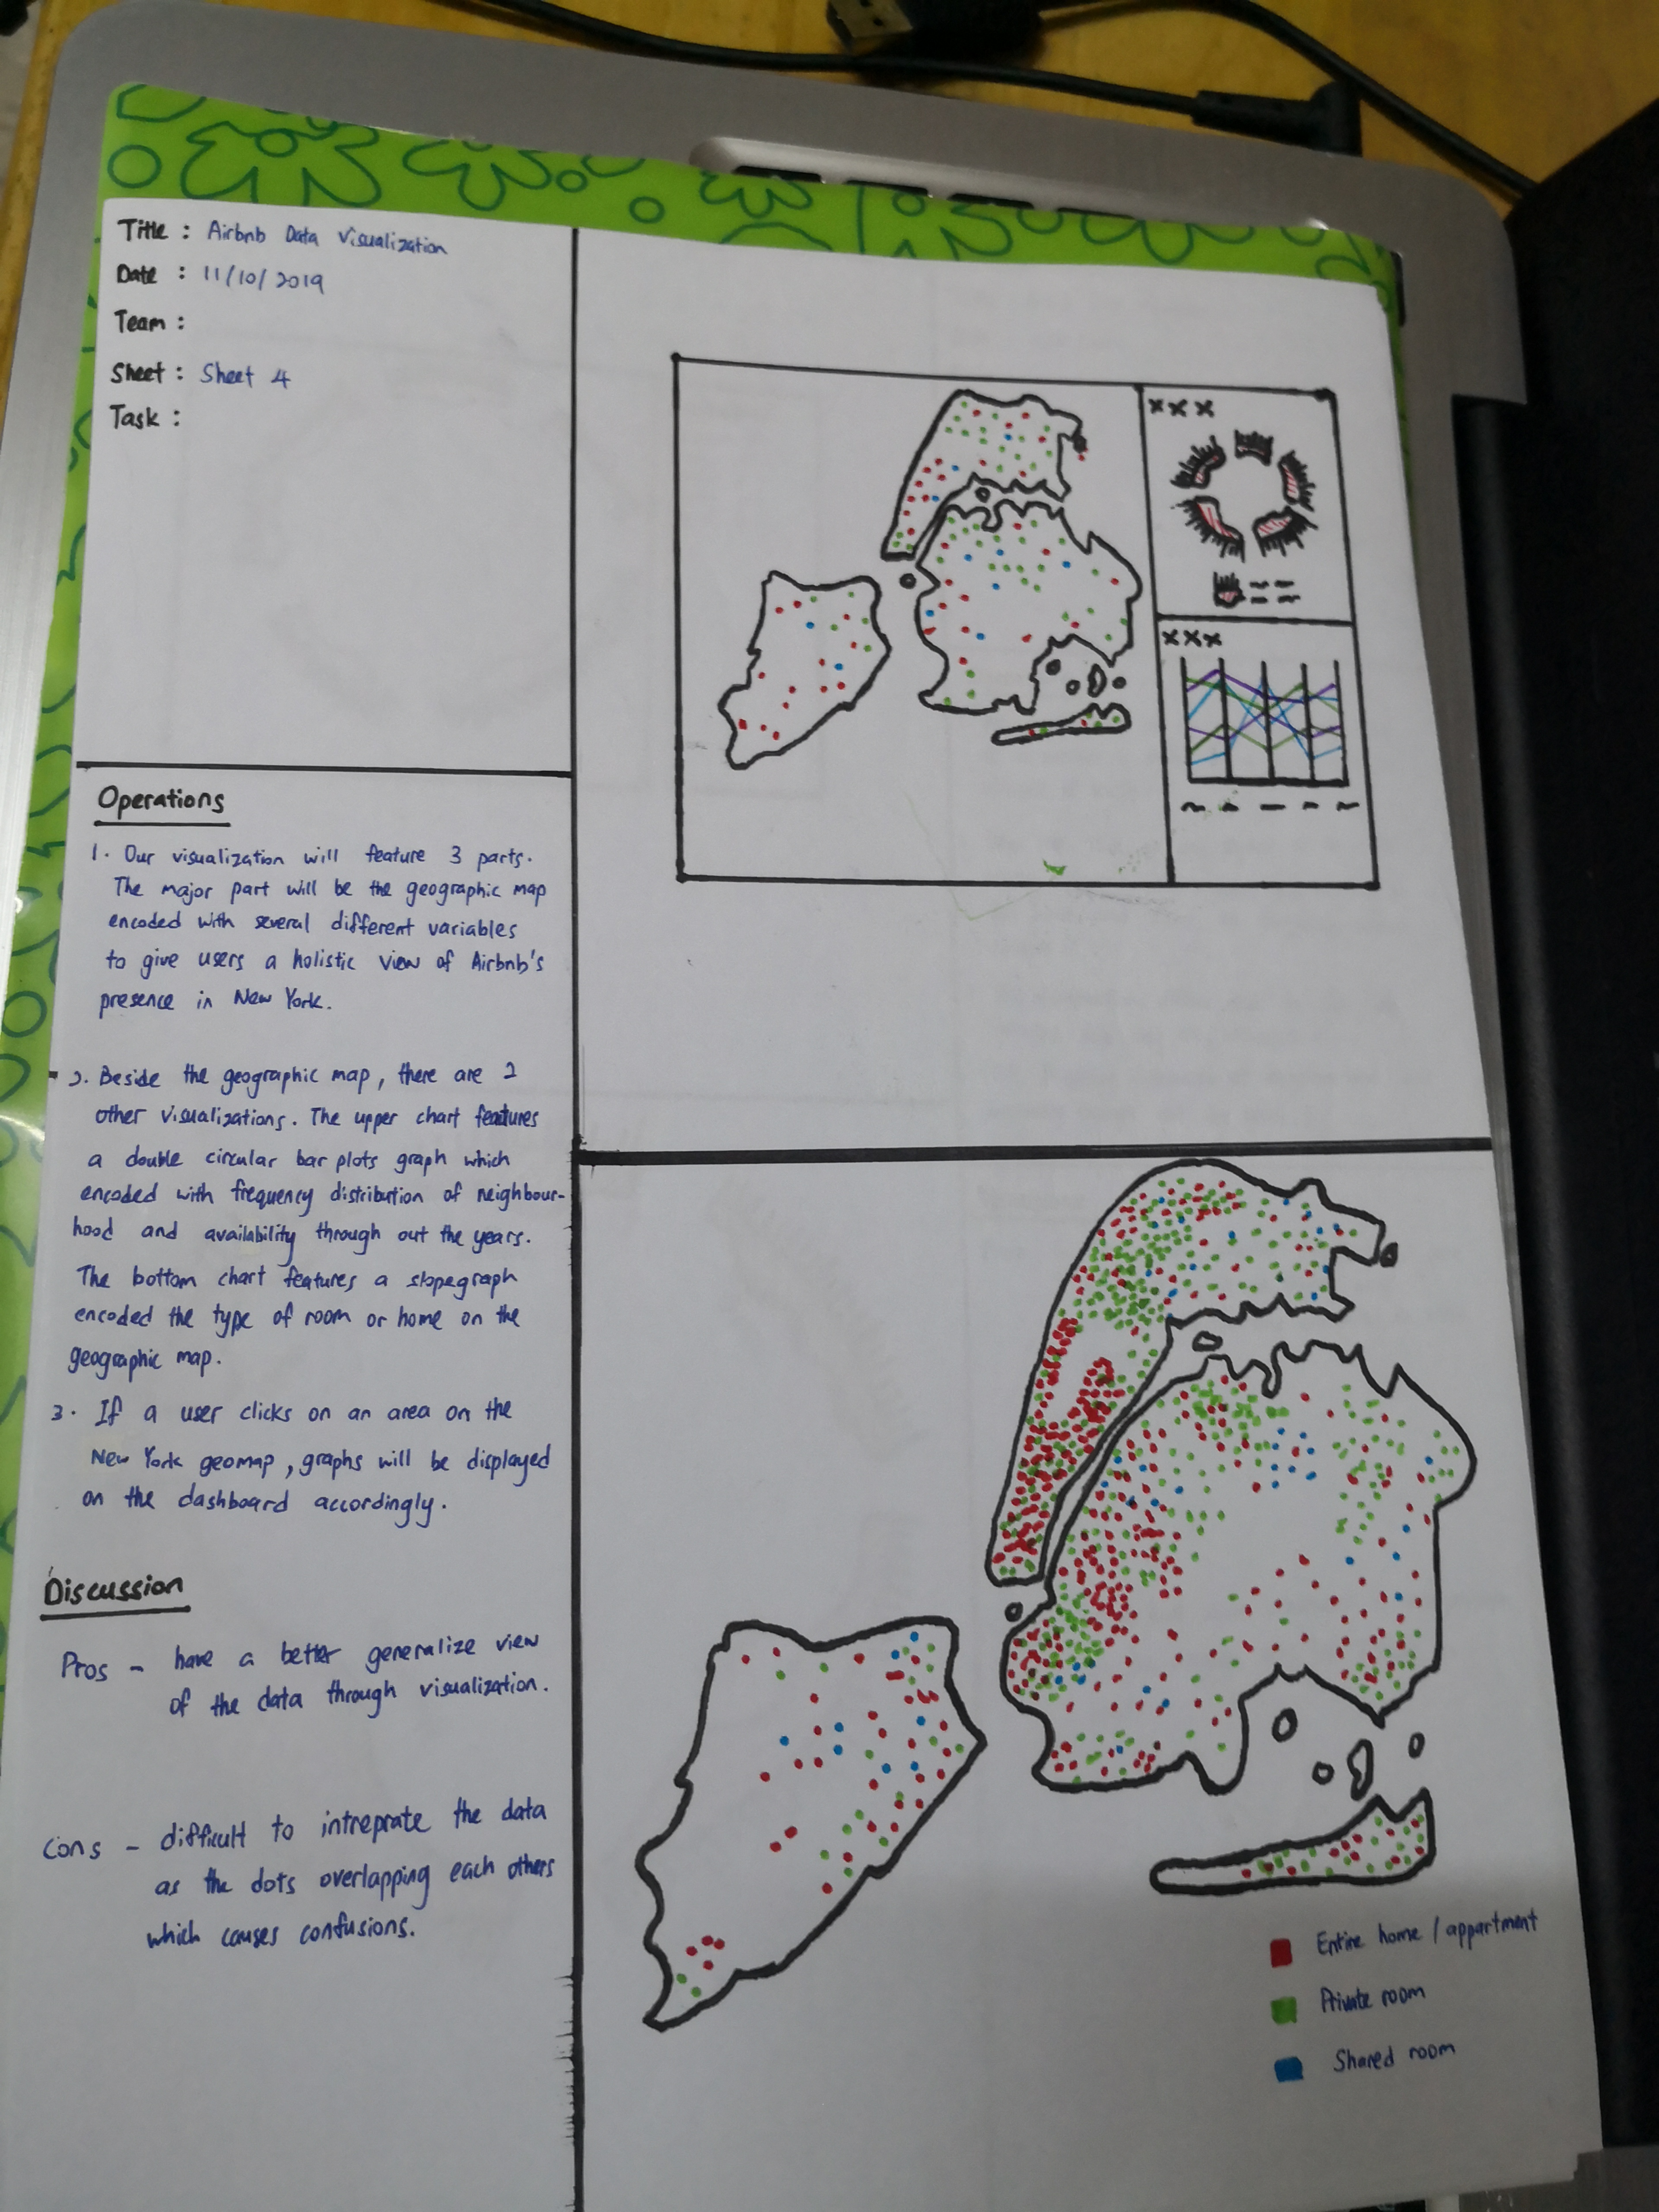 Title : Airbnb Data Visualization
Date : 11/10/2019
Team :
Sheet : Sheet 4
Task :
Operations
1. Our visualization will feature 3 parts.
The major part will be the geographic map
encoded with several different variables
to give users a holistic view of Airbnb's
presence in New York.
2. Beside the geographic map, there are 2
other visualizations. The upper chart features
a double circular bar plots graph which
encoded with frequency distribution of neighbour-
hood and availability through out the years.
The bottom chart features a slopegraph
encoded the type of room or home on the
geographic map.
3. If a user clicks on an area on the
New York geomap, graphs will be displayed
on the dashboard accordingly.
Discussion
Pros - have a better generalize view
of the data through visualization.
Cons - difficult to intreprate the data
as the dots overlapping each others
which causes confusions.
xxx
xxx
Entire home / appartment
Private room
Shared room